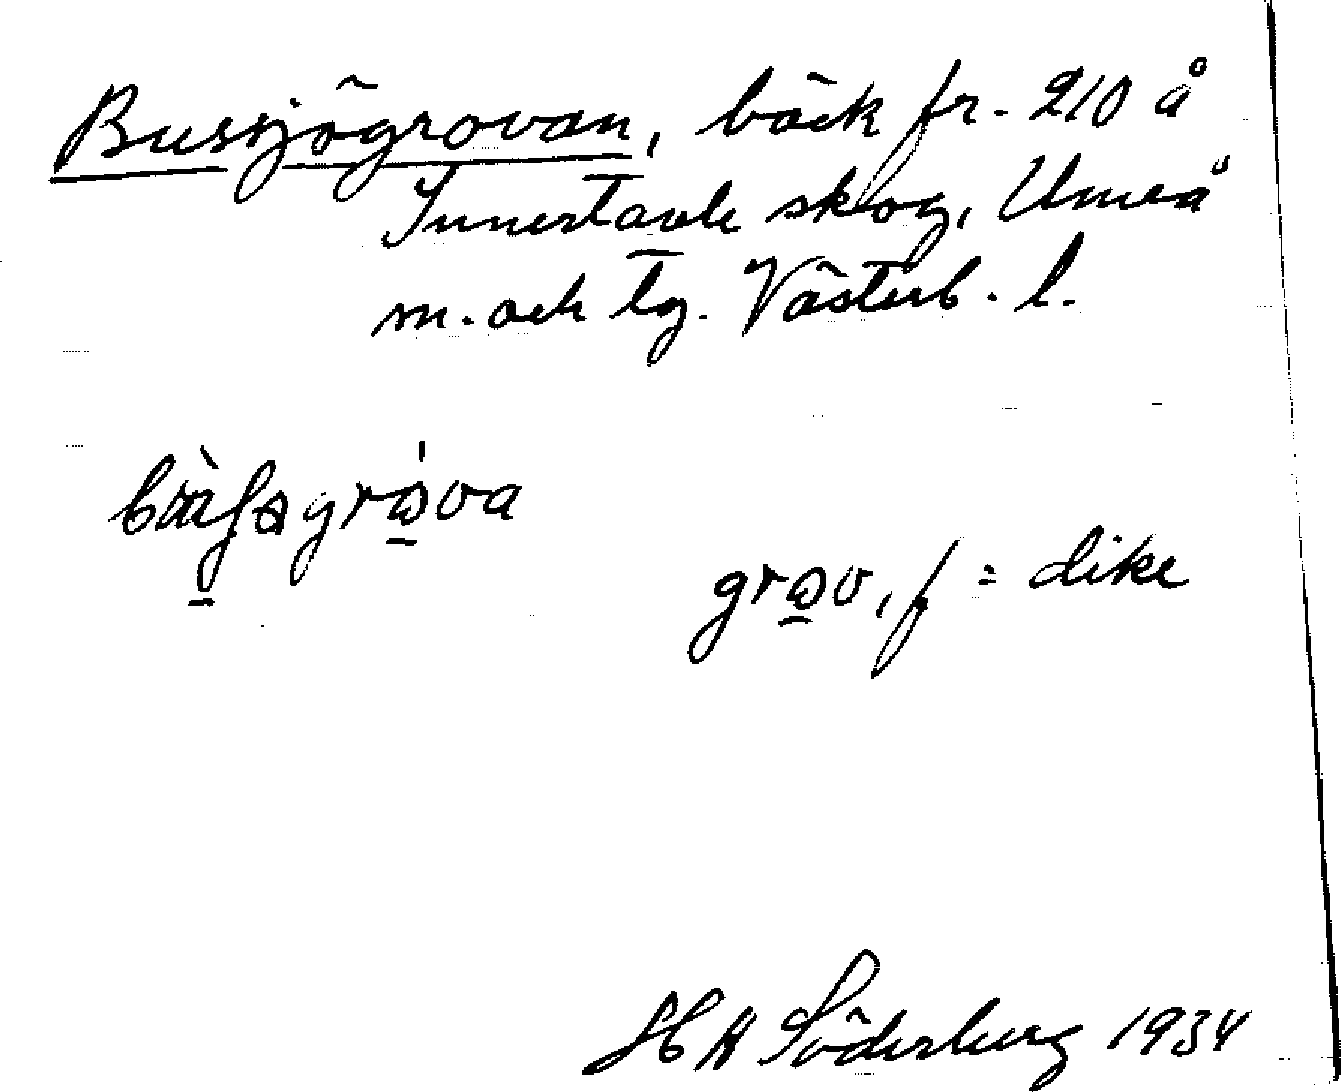 Busjögrovan, bäck fr. 210 å
Innertavle skog, Umeå
m. och tg. Västerb. l.
grov, f = dike
H A Söderberg 1934